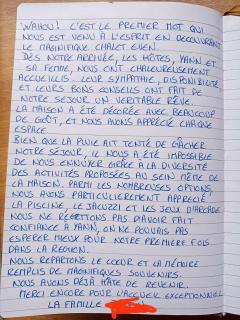 WAHOU! C'EST LE PREMIER MOT QUI
NOUS EST VENU À L'ESPRIT EN DECOUVRANT
LE MAGNIFIQUE CHALET EDEN.
DÈS NOTRE ARRIVÉE, LES HÔTES, YANN ET
SA FEMME, NOUS ONT CHALEUREUSEMENT
ACCUEILLIS. LEUR SYMPATHIE, DISPONIBILITÉ
ET LEURS BONS CONSEILS ONT FAIT DE
NOTRE SEJOUR UN VERITABLE RÊVE.
LA MAISON A ÉTÉ DÉCORÉE AVEC BEAUCOUP
DE GOÛT, ET NOUS AVONS APPRÉCIÉ CHAQUE
ESPACE.
BIEN QUE LA PLUIE AIT TENTÉ DE GÂCHER
NOTRE SÉJOUR, IL NOUS A ÉTÉ IMPOSSIBLE
DE NOUS ENNUYER GRÂCE A LA DIVERSITÉ
DES ACTIVITÉS PROPOSÉES AU SEIN MÊME DE
LA MAISON. PARMI LES NOMBREUSES OPTIONS,
NOUS AVONS PARTICULIEREMENT APPRECIÉ
LA PISCINE, LE JACUZZI ET LES JEUX D'ARCADE.
NOUS NE REGRETTONS PAS D'AVOIR FAIT
CONFIANCE À YANN, ON NE POUVAIS PAS
ESPERER MIEUX POUR NOTRE PREMIERE FOIS
DANS LA REGION.
NOUS REPARTONS LE CŒUR ET LA MÉMOIRE
REMPLIS DE MAGNIFIQUES SOUVENIRS.
NOUS AVONS DÉJÀ HÂTE DE REVENIR.
MERCI ENCORE POUR L'ACCUEIL EXCEPTIONNEL
LA FAMILLE